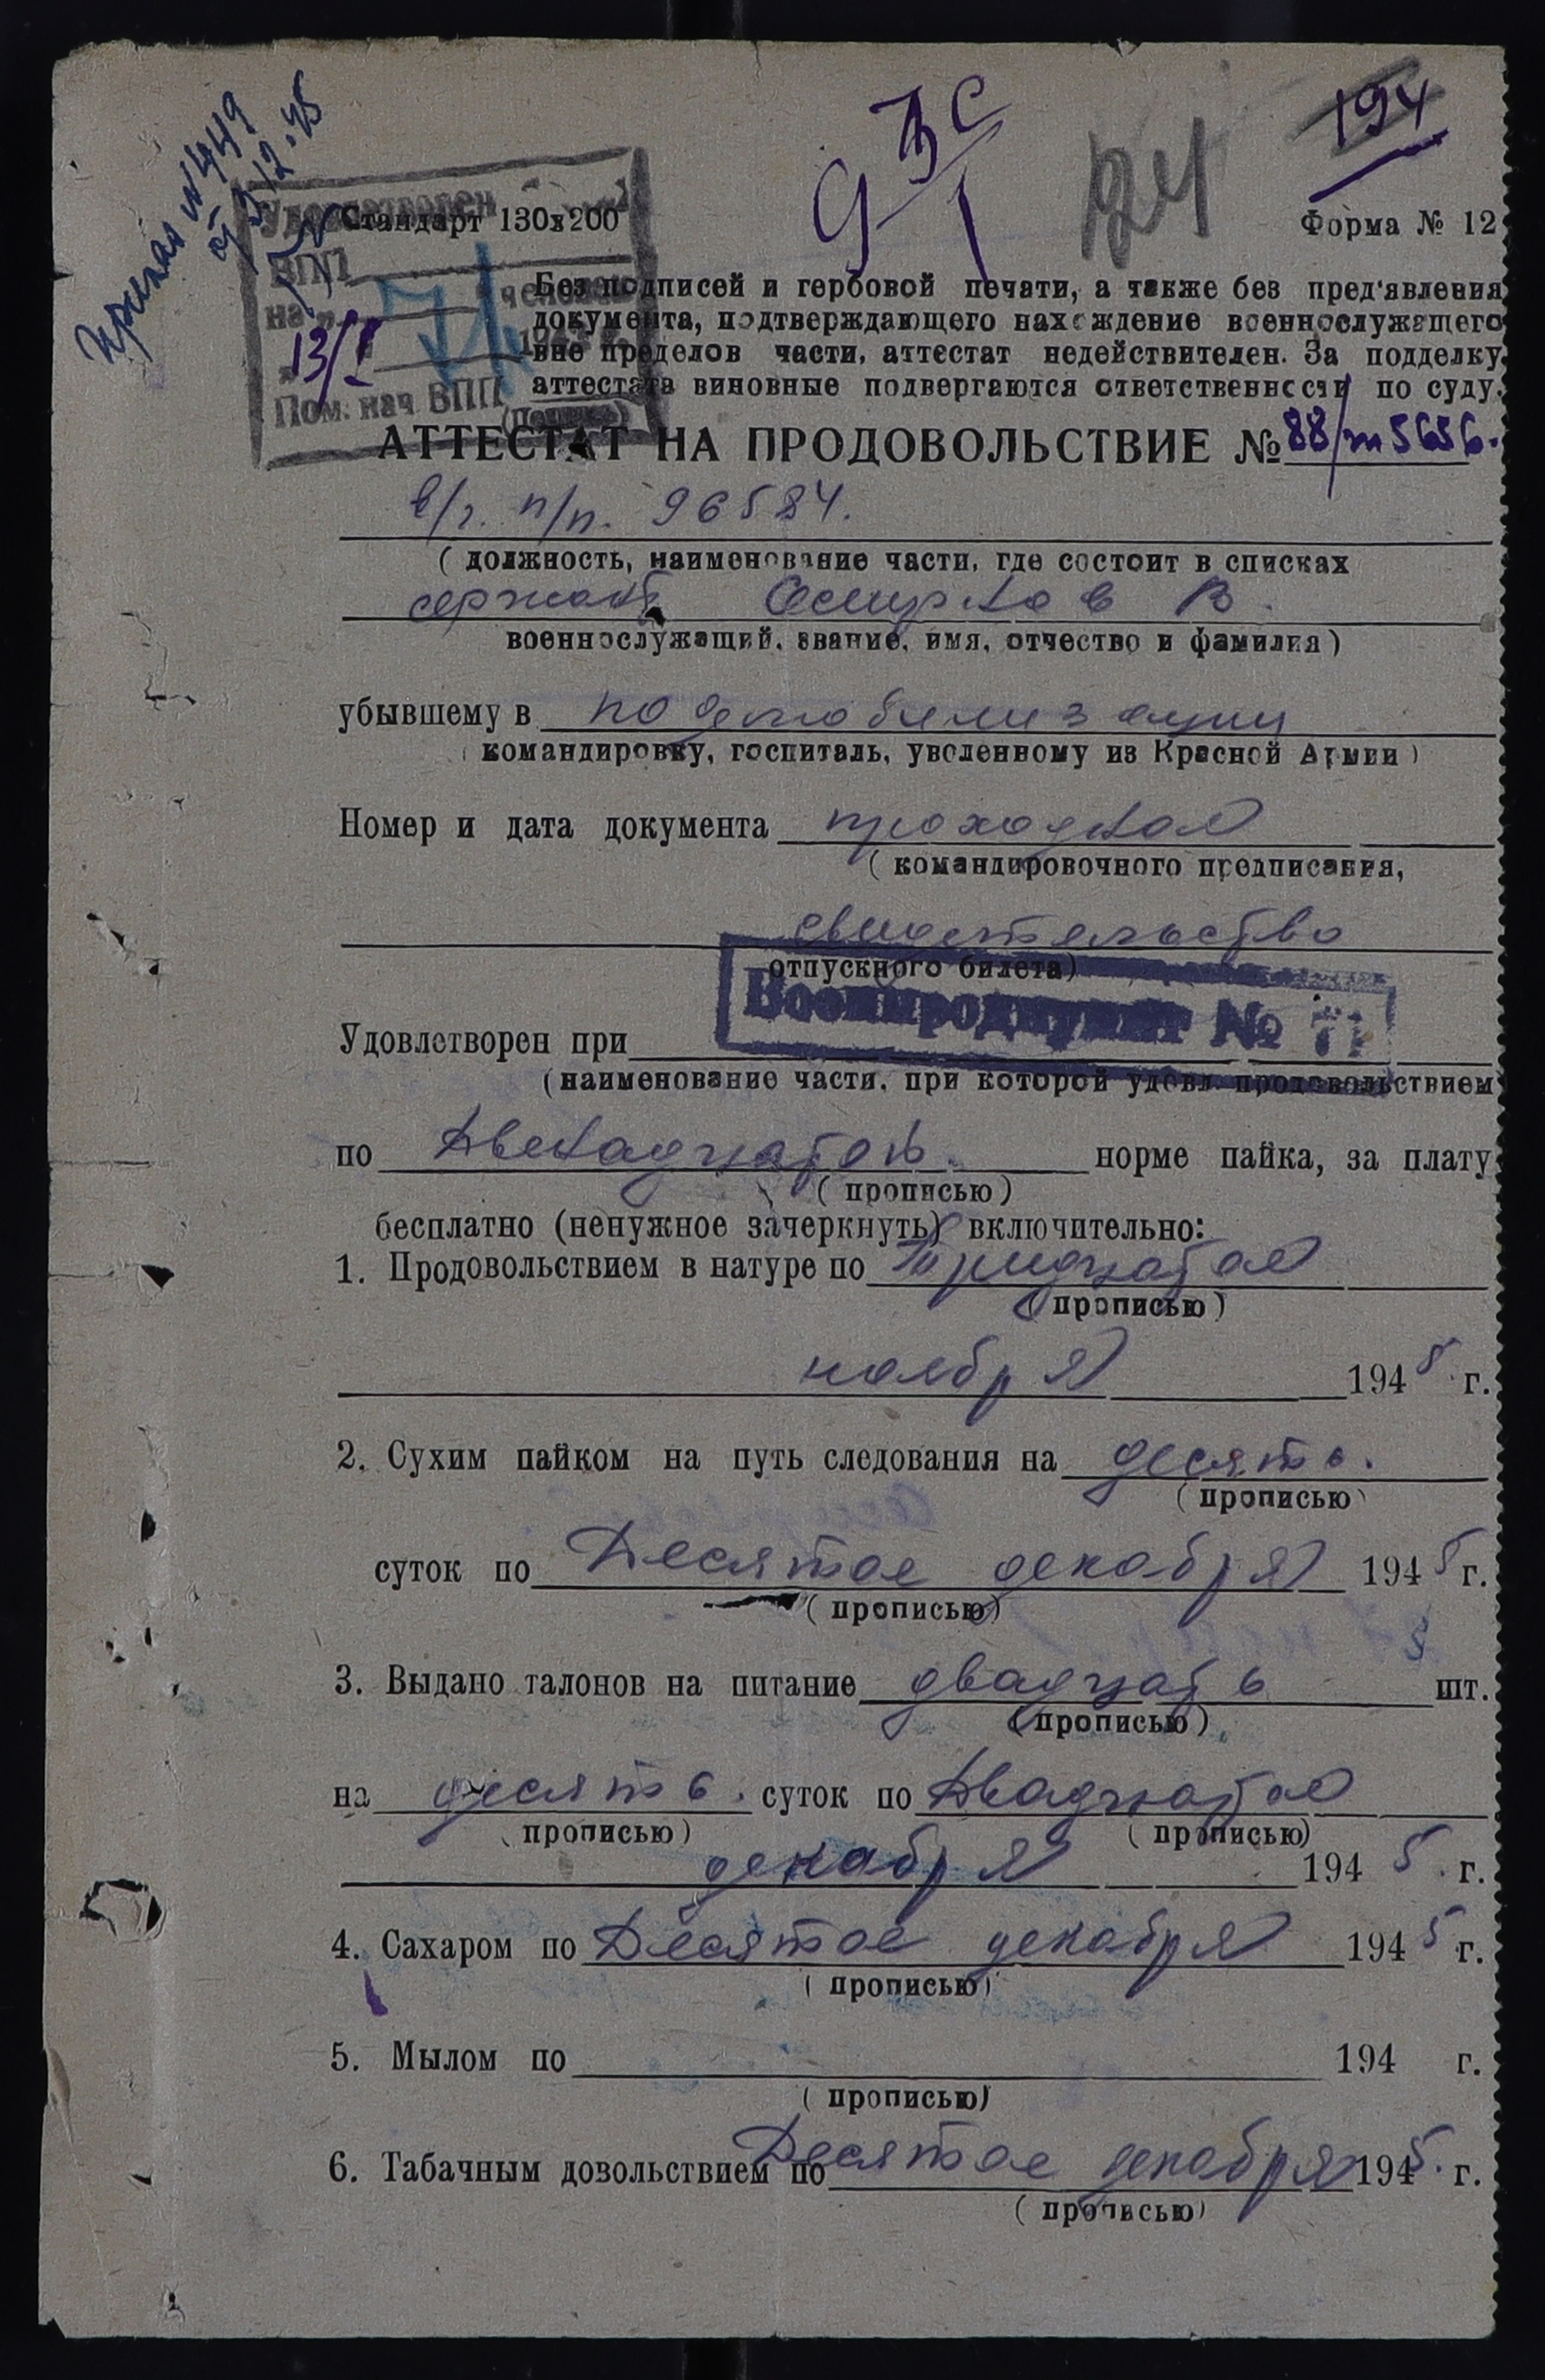 Приказ № 449
от 12.45
194
24
Удовлетворен
Стандарт 130х200
Форма № 12
ВПП
на человек
13/I
Пом. нач ВПП
Без подписей и гербовой печати, а также без пред'явления
документа, подтверждающего нахождение военнослужащего
вне пределов части, аттестат недействителен. За подделку
аттестата виновные подвергаются ответственности по суду.
АТТЕСТАТ НА ПРОДОВОЛЬСТВИЕ № 88/т 5656.
в/г. п/п. 96584.
( должность, наименование части, где состоит в списках
сержант В.
военнослужащий, звание, имя, отчество и фамилия)
убывшему в по демобилизации
(командировку, госпиталь, уволенному из Красной Армии)
Номер и дата документа проходное
( командировочного предписания,
свидетельство
отпускного билета)
Военпродпункт №
Удовлетворен при
(наименование части, при которой удовл. продовольствием
по Двенадцатой норме пайка, за плату
( прописью)
бесплатно (ненужное зачеркнуть) включительно:
1. Продовольствием в натуре по Тридцатое
(прописью)
ноября 1945 г.
2. Сухим пайком на путь следования на десять.
(прописью)
суток по Десятое декабря 1945 г.
(прописью)
3. Выдано талонов на питание двадцать шт.
(прописью)
на десять. суток по Двадцатое
(прописью) (прописью)
декабря 1945 г.
4. Сахаром по Десятое декабря 1945 г.
(прописью)
5. Мылом по 194 г.
(прописью)
6. Табачным довольствием по Десятое декабря 1945 г.
(прописью)